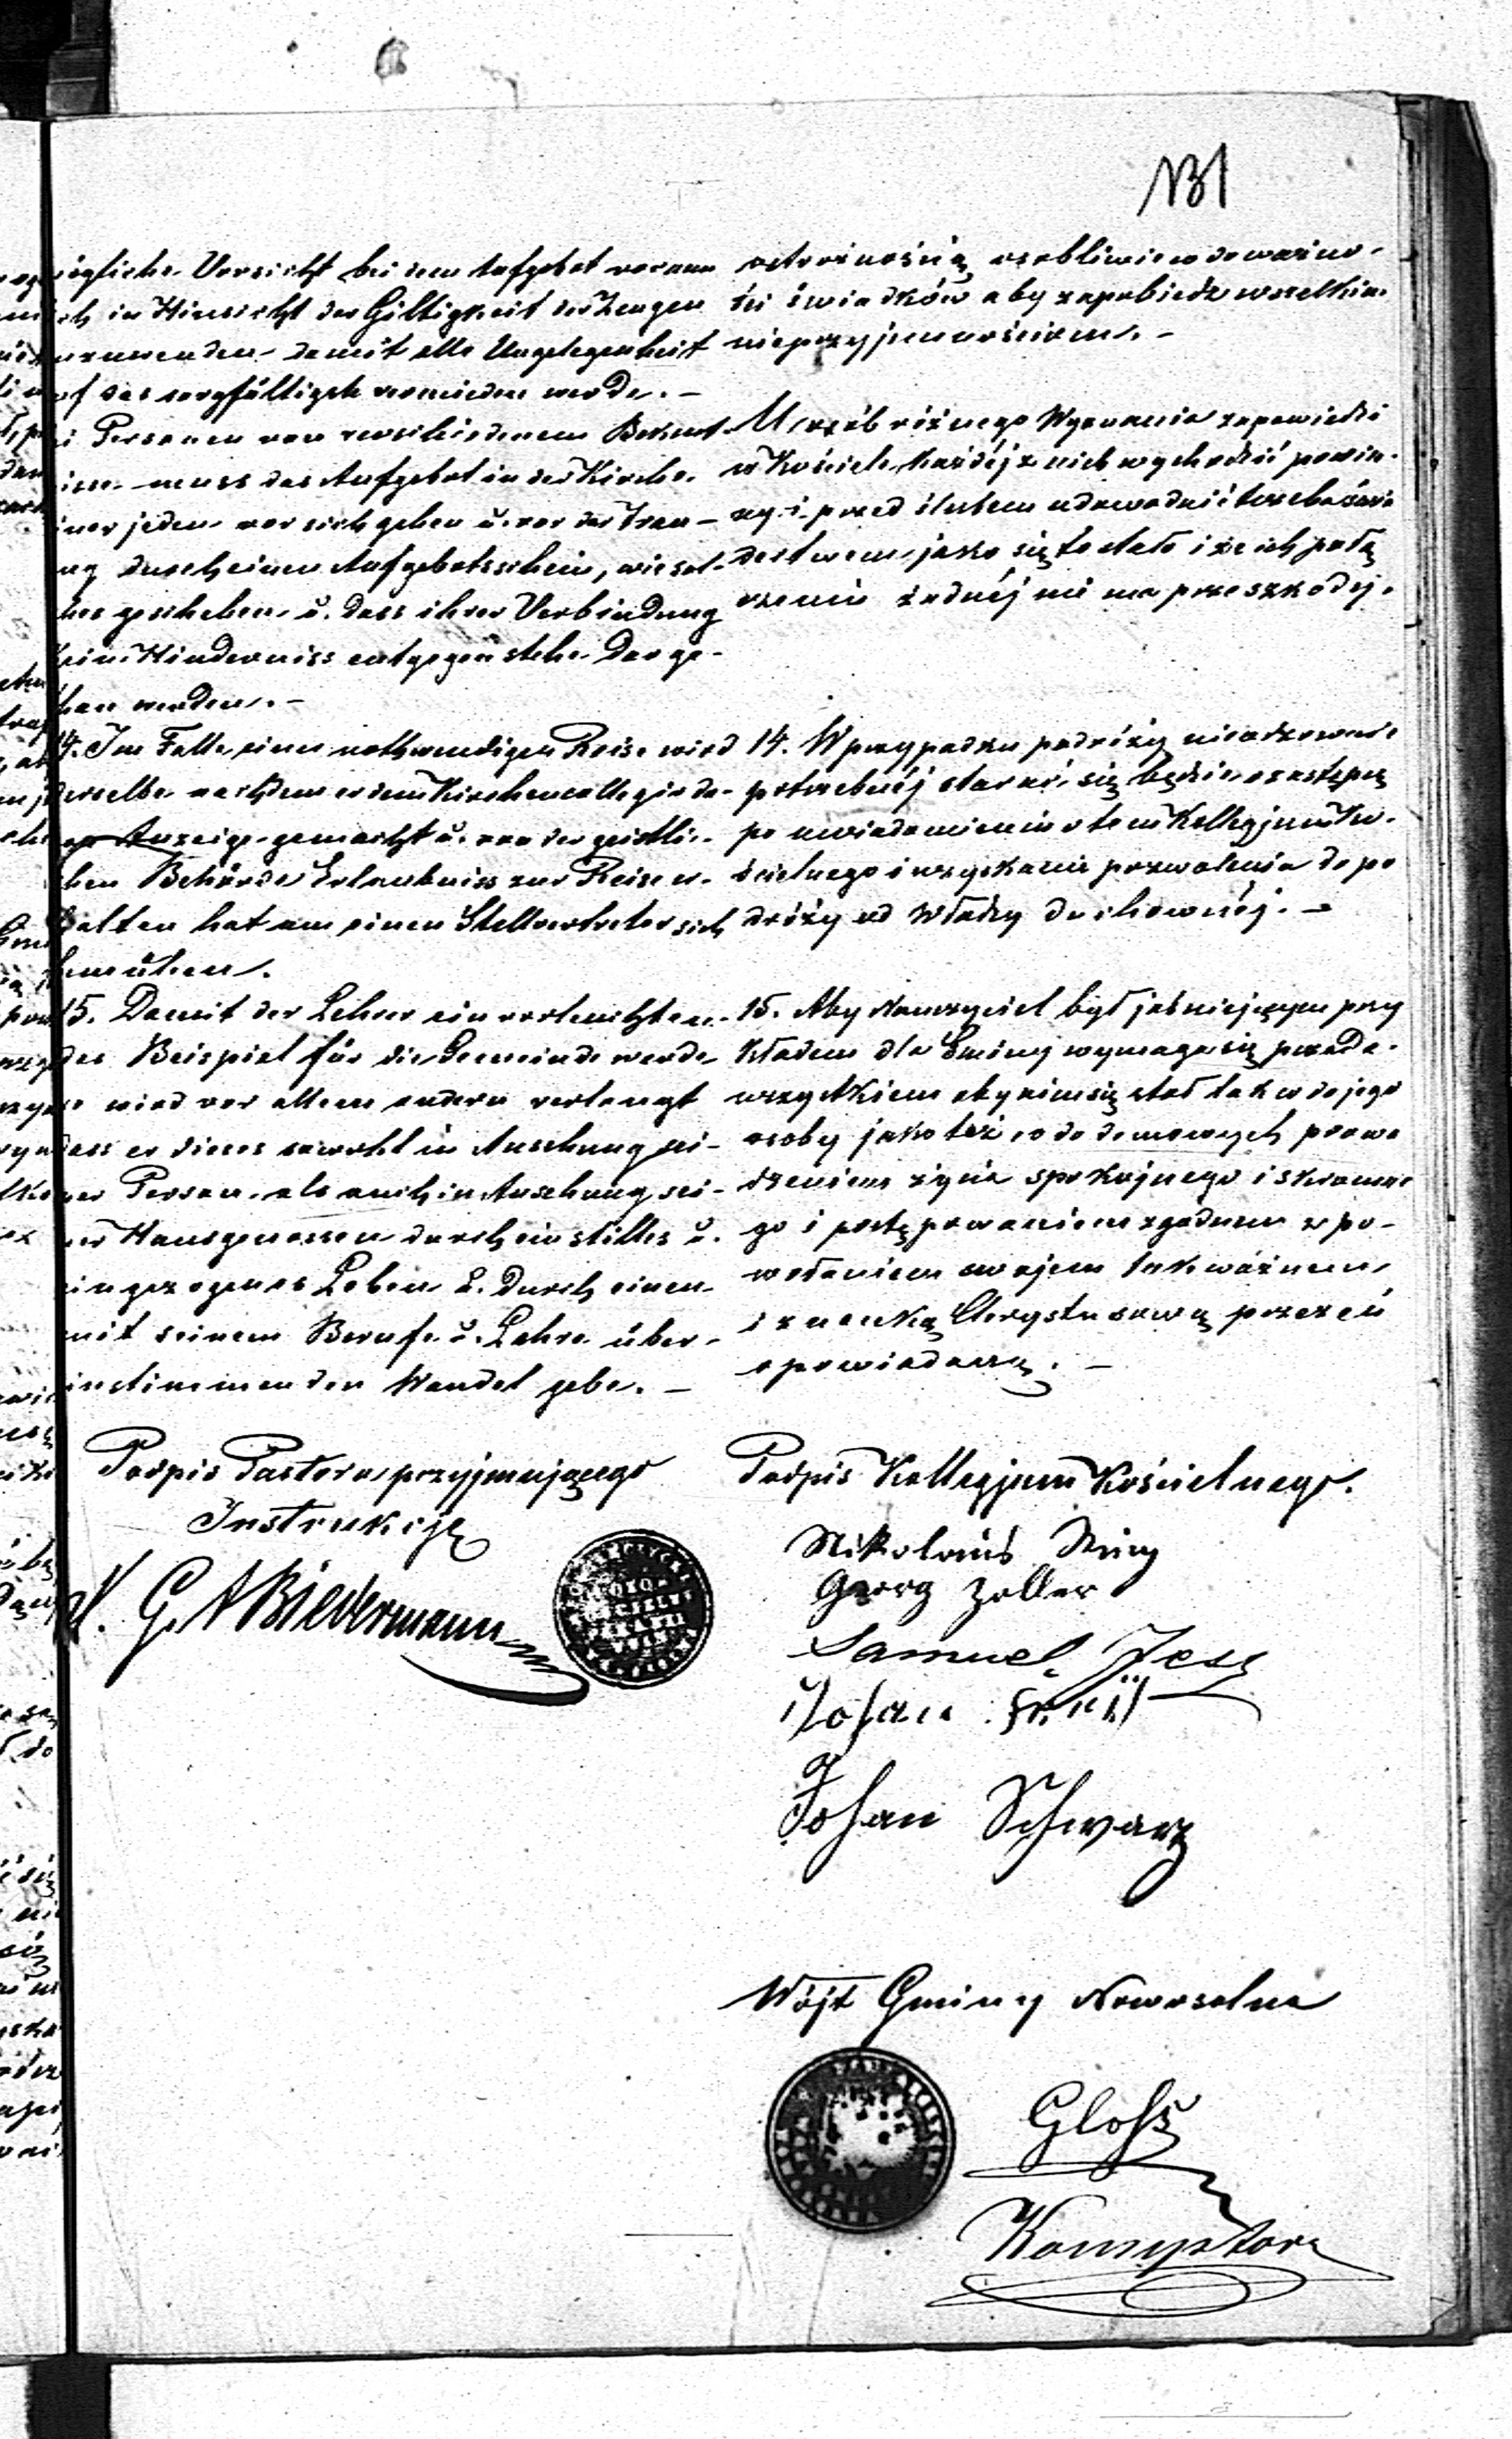 131
ögliche Vorsicht bei dem Aufgebot voraus
ch in Hinsicht der Giltigkeit der Zeugen
anzuwenden damit alle Ungelegenheit
uf das sorgfältigste vermieden werde. –
i Personen von verschiedenem Bekennt-
isse muss das Aufgebot in der Kirche
iner jeden vor sich gehen u. vor der Trau-
ng durch einen Aufgebotsschein, wie sol-
ches geschehen u. dass ihrer Verbindung
kein Hinderniss entgegen stehe dar ge-
than werden. –
14. Im Falle einer nothwendigen Reise wird
derselbe nachdem er dem Kirchencollegio da-
von Anzeige gemacht u. von der geistli-
chen Behörde Erlaubniss zur Reise er-
halten hat um einen Stellvertreter sich
bemühen.
15. Damit der Lehrer ein vorleuchten-
des Beispiel für die Gemeinde werde
wird vor allem andern verlangt
dass er dieses sowohl in Ansehung sei-
ner Person als auch in Ansehung sei-
ner Hausgenossen durch ein stilles u.
eingezogenes Leben u. durch einen
mit seinem Berufe u. Lehre über-
instimmenden Wandel gebe. –
ostrożnością osobliwie co do ważno-
ści świadków aby zapobiedz wszelkim
nieprzyjemnościom. –
U osób różnego Wyznania zapowiedzi
w Kościele każdéj z nich wychodzić powin-
ny i przed ślubem udowodnić trzeba świa
dectwem jako się to stało i że ich połą
czeniu żadnéj nie ma przeszkody.
14. W przypadku podróży nieodzownie
potrzebnéj starać się będzie o zastępcę
po uwiadomieniu o tem Kollegjum Ko-
ścielnego i uzyskaniu pozwolenia do po
dróży od Władzy duchownéj. –
15. Aby Nauczyciel był jaśniejącym przy
kładem dla Gminy wymaga się przede-
wszystkiem aby nim się stał tak co do jego
osoby jako też co do domowych prowa
dzeniem życia spokojnego i skromne
go i postępowaniem zgodnem z po-
wołaniem swojem tak ważnem
i z nauką Chrystusową przezeń
opowiadaną. –
Podpis Pastora przyjmującego
Instrukcję
G. A Biedermann
Podpis Kollegjum Kościelnego.
Nikolaus
Georg Zoller
Samuel
Johan
Johan Schwarz
Wójt Gminy Nowosolna
Gloß